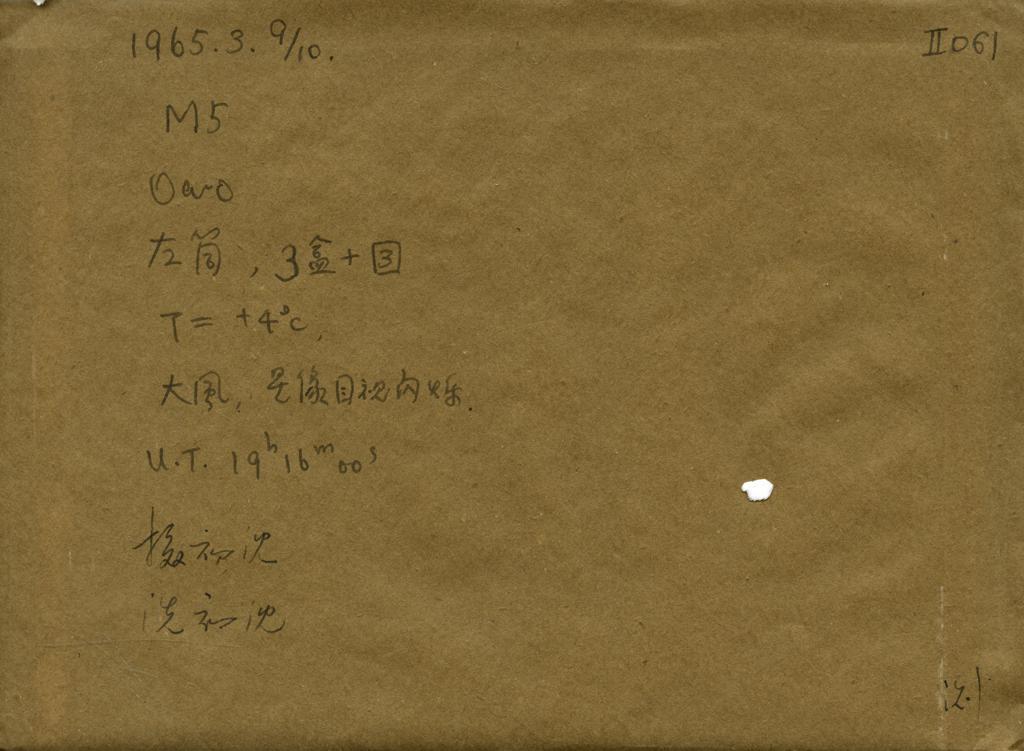 1965.3.9/10.
II061
M5
OaO
左筒, 3盒+3
T= +4°C,
大風, 星像目视闪烁.
U.T. 19h16m00s
摄 初 沈
洗 初 沈